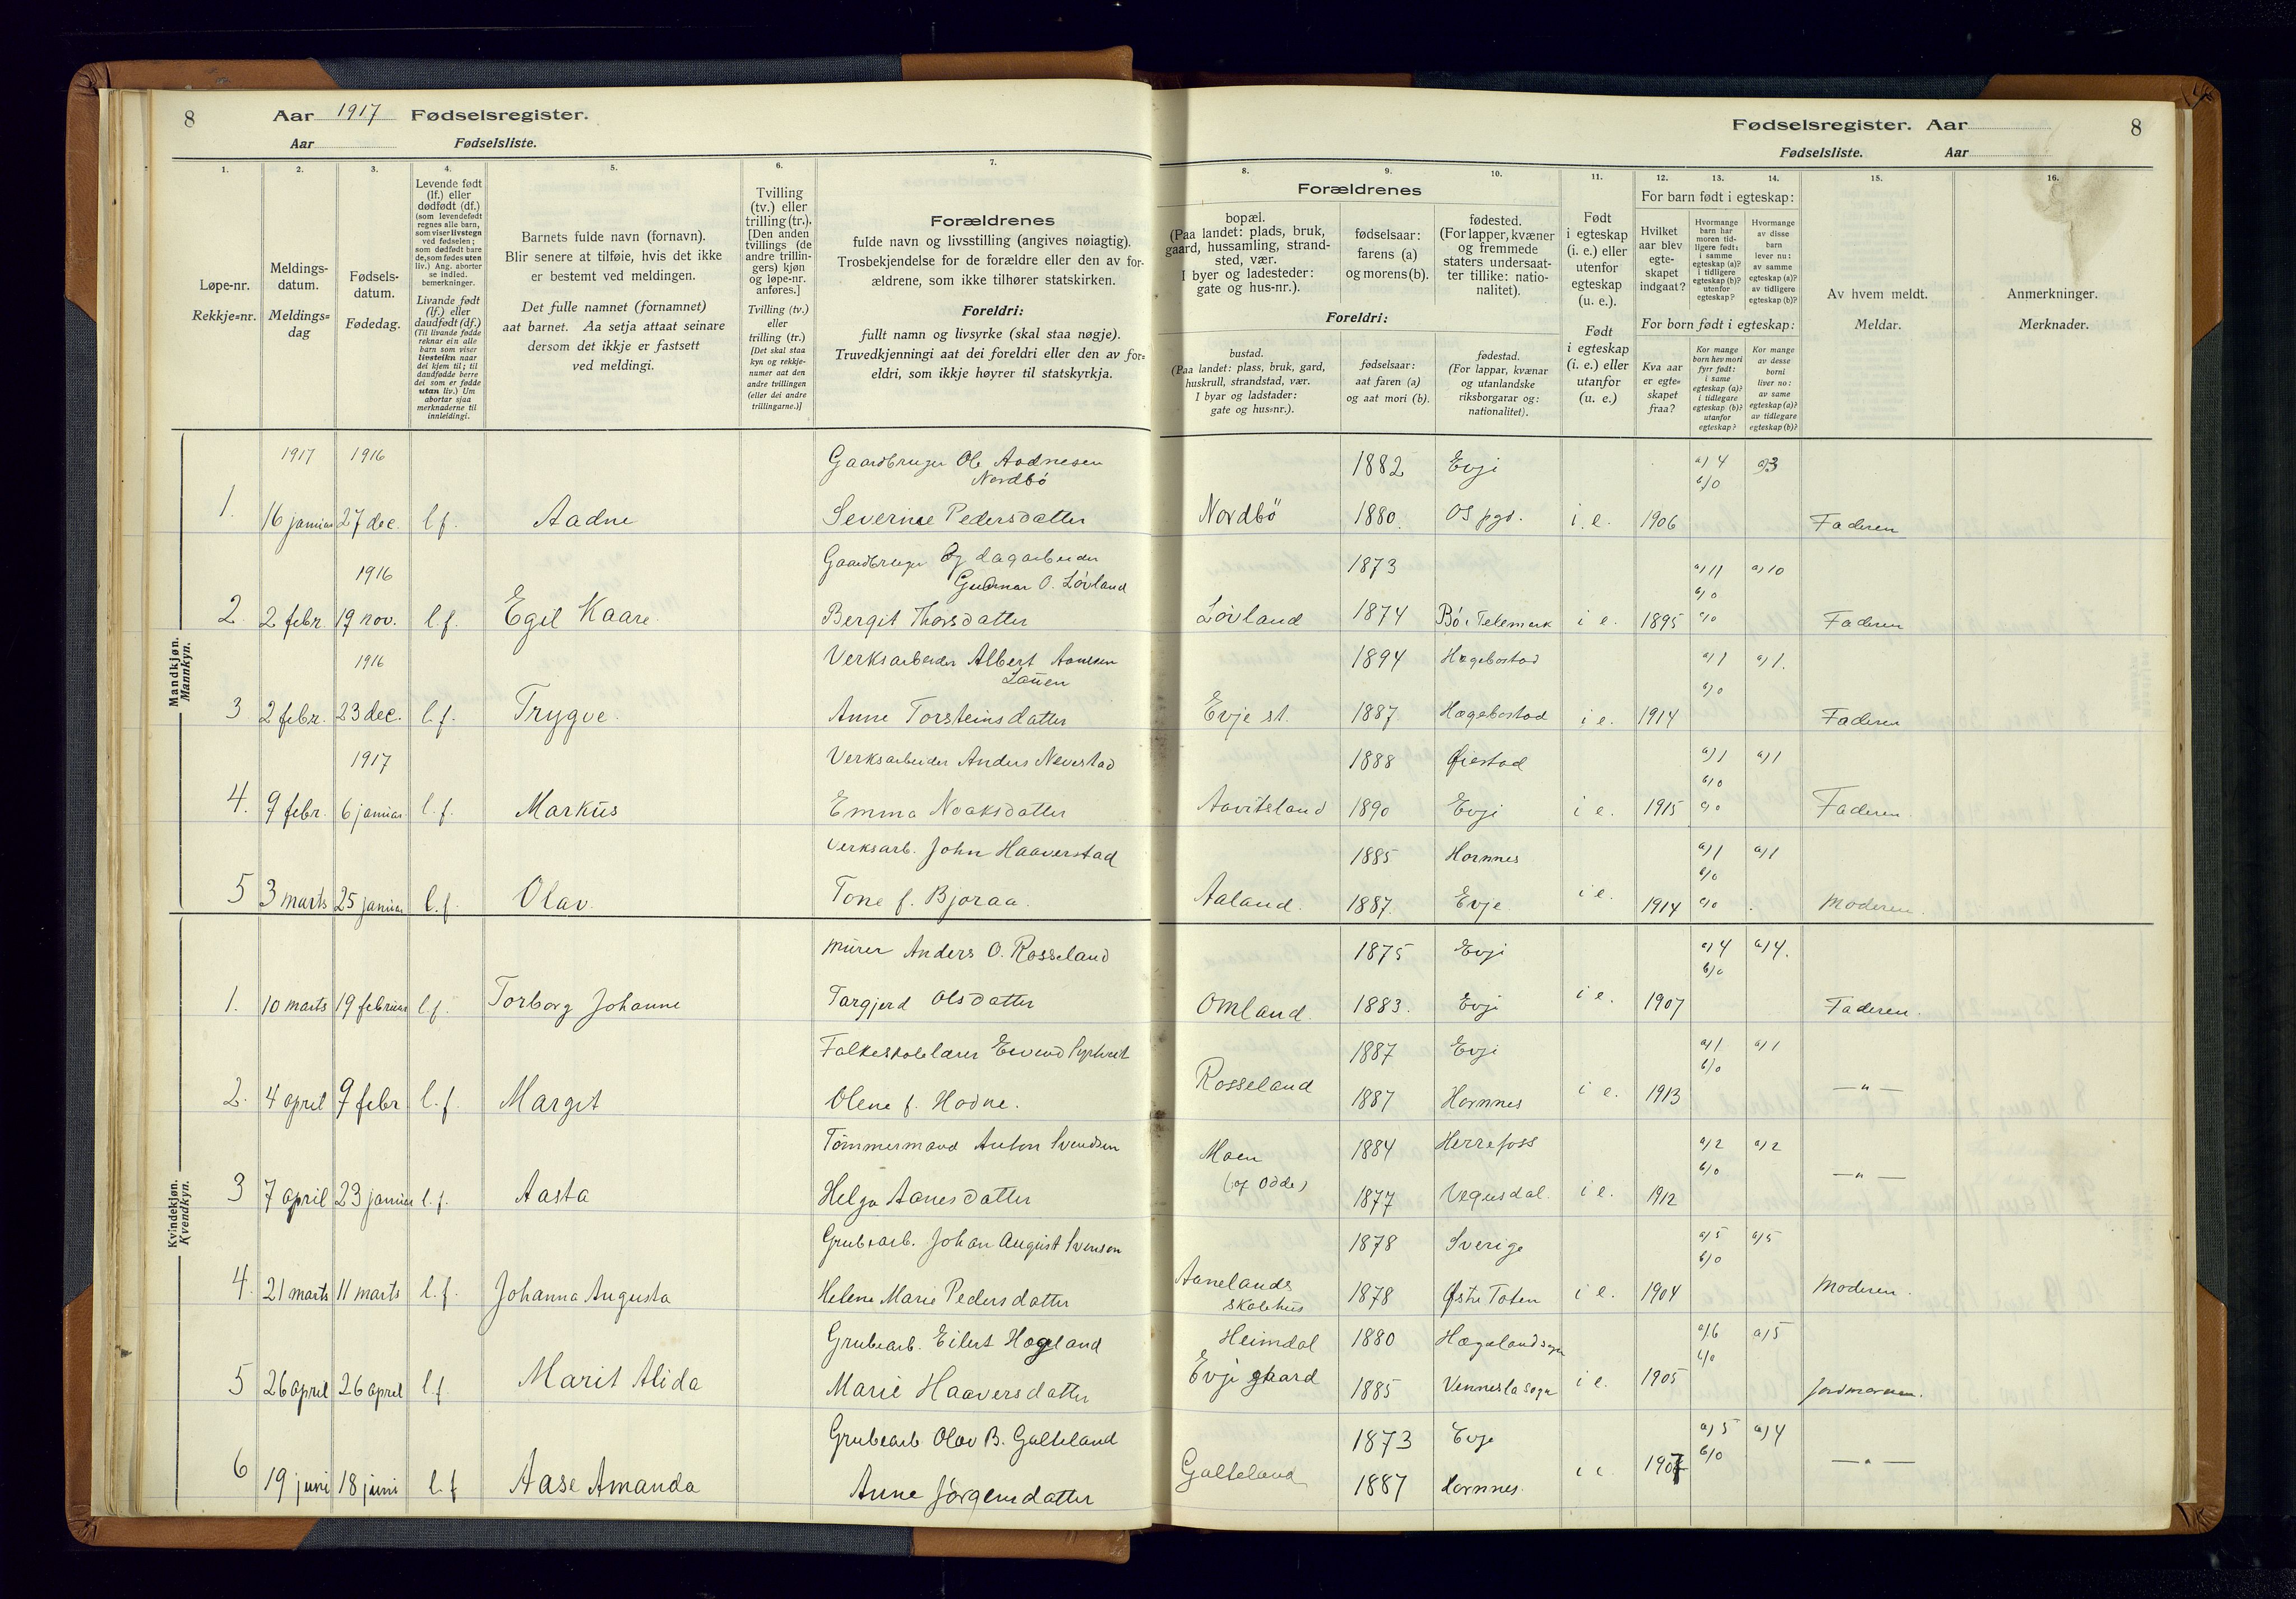 8
Aar 1917 Fødselsregister.
Aar Fødselsliste.
1.
2.
3.
4.
5.
6.
7.
Løpe-nr.
Rekkje=nr.
Meldings-
datum.
Meldings=
dag
Fødsels-
datum.
Fødedag.
Levende født
(lf.) eller
dødfødt (df.)
(som levendefødt
regnes alle barn,
som viser livstegn
ved fødselen;
som dødfødt bare
de, som fødes uten
liv.) Ang. aborter
se indled.
bemerkninger.
Livande født
(lf.) eller
daudfødt (df.)
(Til livande fødde
reknar ein alle
barn som viser
livsteikn naar
dei kjem til; til
daudfødde berre
dei som er fødde
utan liv.) Um
abortar sjaa
merknaderne til
innleidingi.
Barnets fulde navn (fornavn).
Blir senere at tilføie, hvis det ikke
er bestemt ved meldingen.
Det fulle namnet (fornamnet)
aat barnet. Aa setja attaat seinare
dersom det ikkje er fastsett
ved meldingi.
Tvilling
(tv.) eller
trilling (tr.).
[Den anden
tvillings (de
andre trillin-
gers) kjøn
og løpe-nr.
anføres.]
Tvilling (tv.)
eller
trilling (tr.)
[Det skal staa
kyn og rekkje-
numer aat den
andre tvillingen
(eller dei andre
trillingarne.)]
Forældrenes
fulde navn og livsstilling (angives nøiagtig).
Trosbekjendelse for de forældre eller den av for-
ældrene, som ikke tilhører statskirken.
Foreldri:
fullt namn og livsyrke (skal staa nøgje).
Truvedkjenningi aat dei foreldri eller den av for=
eldri, som ikkje høyrer til statskyrkja.
Fødselsregister. Aar
8
Fødselsliste. Aar
8.
9.
10.
11.
12.
13.
14.
15.
16.
Forældrenes
bopæl.
(Paa landet: plads, bruk,
gaard, hussamling, strand-
sted, vær.
I byer og ladesteder:
gate og hus-nr.).
fødselsaar:
farens (a)
og morens (b).
fødested.
(For lapper, kvæner
og fremmede
staters undersaat-
ter tillike: natio-
nalitet).
Foreldri:
bustad.
(Paa landet: plass, bruk, gard,
huskrull, strandstad, vær.
I byar og ladstader:
gate og hus=nr.).
fødselsaar:
aat faren (a)
og aat mori (b).
fødestad.
(For lappar, kvænar
og utanlandske
riksborgarar og:
nationalitet).
Født
i egteskap
(i. e.) eller
utenfor
egteskap
(u. e.).
Født
i egteskap
(i. e.) eller
utanfor
(u. e.)
For barn født i egteskap:
Hvilket
aar blev
egte-
skapet
indgaat?
Hvormange
barn har
moren tid-
ligere født:
i samme
egteskap (a)?
i tidligere
egteskap (b)?
utenfor
egteskap?
Hvormange
av disse
barn
lever nu:
av samme
egteskap (a)?
av tidligere
egteskap (b)?
For born født i egteskap:
Kva aar
er egte=
skapet
fraa?
Kor mange
born hev mori
fyrr født:
i same
egteskap (a)?
i tidlegare
egteskap (b)?
utanfor
egteskap?
Kor mange
av desse
borni
liver no:
av same
egteskap (a)?
av tidlegare
egteskap (b)?
Av hvem meldt.
Meldar.
Anmerkninger.
Merknader.
Mandkjøn.
Mannkyn.
1917 1916 Gaardbruger Ole Aadnesen 1882 Evji a) 4 a) 3
Nordbö b) 0
1. 16 januar 27 dec. l.f. Aadne Severine Pedersdatter Nordbö 1880. Os pgd. i. e. 1906 Faderen
Gaardbruger og dagarbeider 1873
1916 Gudmar O. Lövland a) 11 a) 10
b) 0
2. 2 febr. 19 nov. l.f. Egil Kaare. Bergit Thorsdatter Lövland 1874 Bö i Telemark i e. 1895 c) 0 Faderen
1916 Verksarbeider Albert Aanesen 1894 Hægebostad a) 1 a) 1.
Lauen b) 0
3 2 febr. 23 dec. l.f. Trygve. Anne Torsteinsdatter Evje st. 1887 Hægebostad i e. 1914 Faderen
1917 Verksarbeider Anders Nevestad 1888 Øiestad a) 1 a) 1
b) 0
4. 9 febr. 6 januar l.f. Markus Emma Noaksdatter Aavitsland 1890 Evji i e. 1915 c) 0 Faderen.
Verksarb. John Haaverstad 1885 Hornnes a) 1 a) 1
b) 0
5 3 marts 25 januar l.f. Olav. Tone f. Bjoraa. Aaland. 1887. Evje i e. 1914 c) 0 Moderen.
Kvindekjøn.
Kvendkyn.
Murer Anders O. Rosseland 1875 Evji a) 4 a) 4.
b) 0
1. 10 marts 19 februar l.f. Torborg Johanne Targjerd Olsdatter Omland. 1883. Evji i e. 1907 Faderen.
Folkeskolelærer Eivind 1887 Evji a) 1 a) 1
b) 0
2. 4 april 9 febr l.f. Margit Olene f. Hodne. Rosseland 1887 Hornnes i e. 1913 — " —
Tömmermand Anton Svendsen Moen 1884 Herrefoss a) 2 a) 2
(of Odde) b) 0
3 7 april 23 januar l.f. Aasta Helga Aanesdatter 1877 Vegusdal. i e. 1912 — " —
Grubearb. Johan August Svensen 1878 Sverige a) 5 a) 5
b) 0
4. 21 marts 11 marts l.f. Johanna Augusta Helene Marie Pedersdatter Aanelands 1878 Østre Toten i e. 1904 Moderen.
skolehus
Grubearb. Eilert Hageland Heimdal 1880 Hægelandsogn a) 6 a) 5
b) 0
5 26 april 26 april l.f. Marit Alida Marie Haaversdatter Evje gaard 1885 Vennesla sogn i e. 1905 Jordmoren.
Grubearb Olav B. Galteland 1873 Evje a) 5 a) 4
b) 0
6 19 juni 18 juni l.f Aase Amanda Anne Jörgensdatter Galteland 1887 Hornnes. i e 1907 — " —